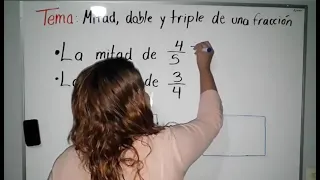 Tema: Mitad, doble y triple de una fracción
• La mitad de 4/5 =
• La de 3/4